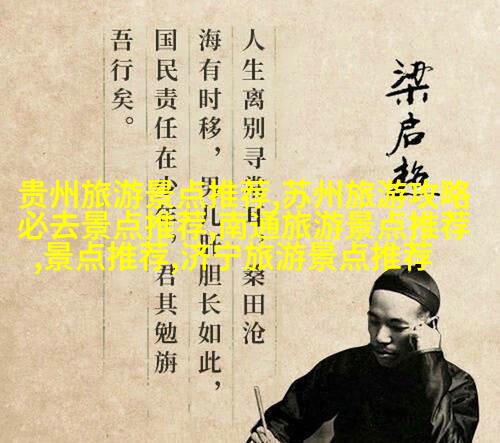 梁启超
人生离别寻常耳，桑田沧
海有时移，男儿肝胆长如此，
国民责任在少年，君其勉旃
吾行矣。
贵州旅游景点推荐,苏州旅游攻略
必去景点推荐,南通旅游景点推荐
,景点推荐,济宁旅游景点推荐